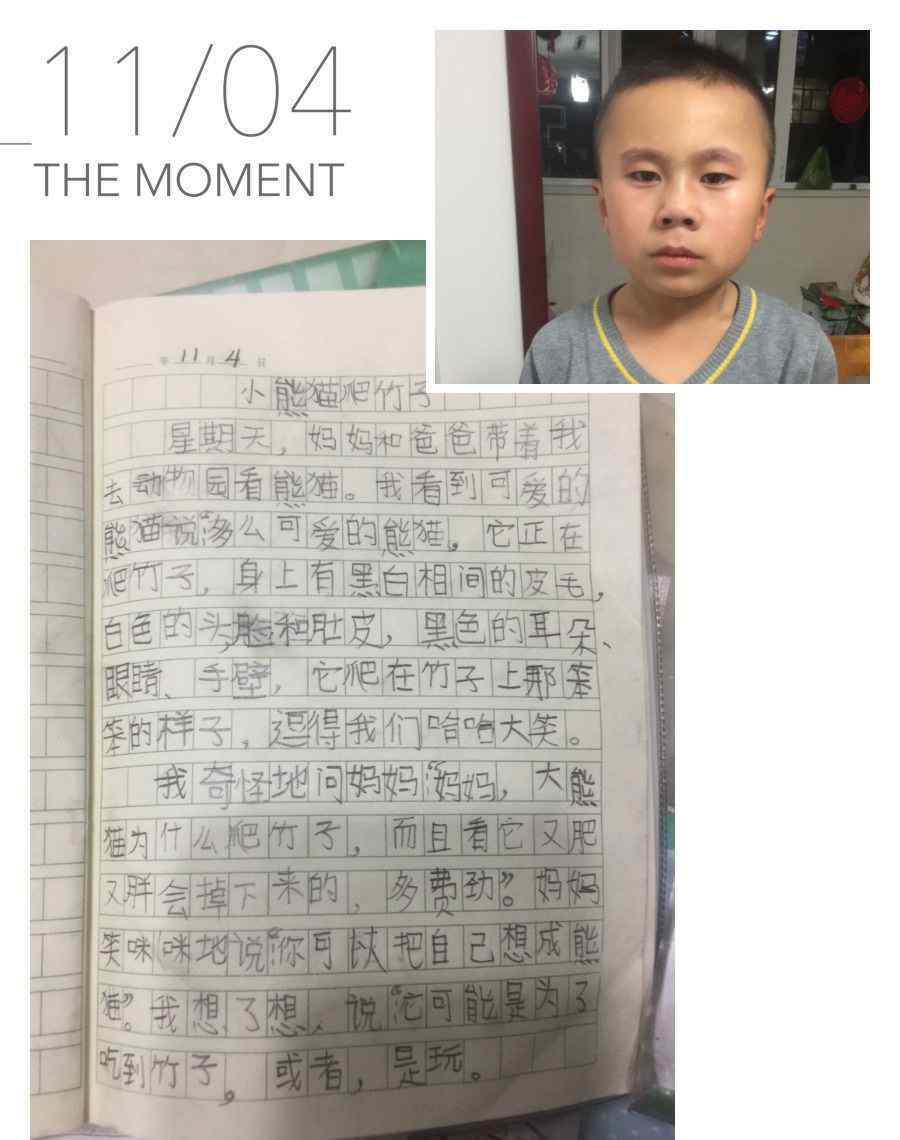 11/04
THE MOMENT
年 11 月 4 日
小熊猫爬竹子
星期天，妈妈和爸爸带着我
去动物园看熊猫。我看到可爱的
熊猫说“多么可爱的熊猫。它正在
爬竹子，身上有黑白相间的皮毛，
白色的头、脸和肚皮，黑色的耳朵、
眼睛、手壁，它爬在竹子上那笨
笨的样子，逗得我们哈哈大笑。
我奇怪地问妈妈“妈妈，大熊
猫为什么爬竹子，而且看它又肥
又胖会掉下来的，多费劲”。妈妈
笑咪咪地说“你可以把自己想成熊
猫”。我想了想、说“它可能是为了
吃到竹子。或者，是玩。